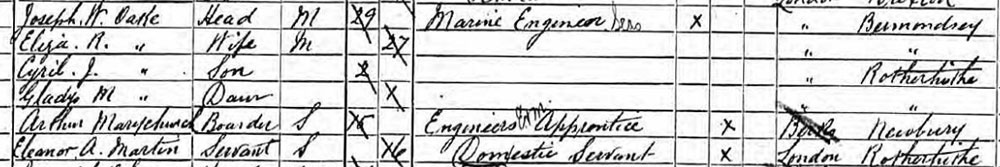 Joseph W. Oaste Head M 29 Marine Engineer x " Bermondsey
Eliza. R. " Wife M 27 " "
Cyril. J. " Son 2 " Rotherhithe
Gladys M " Daur x "
Arthur Marychurch Boarder S 18 Engineers Apprentice x Berks Newbury
Eleanor A. Martin Servant S 16 Domestic Servant x London Rotherhithe